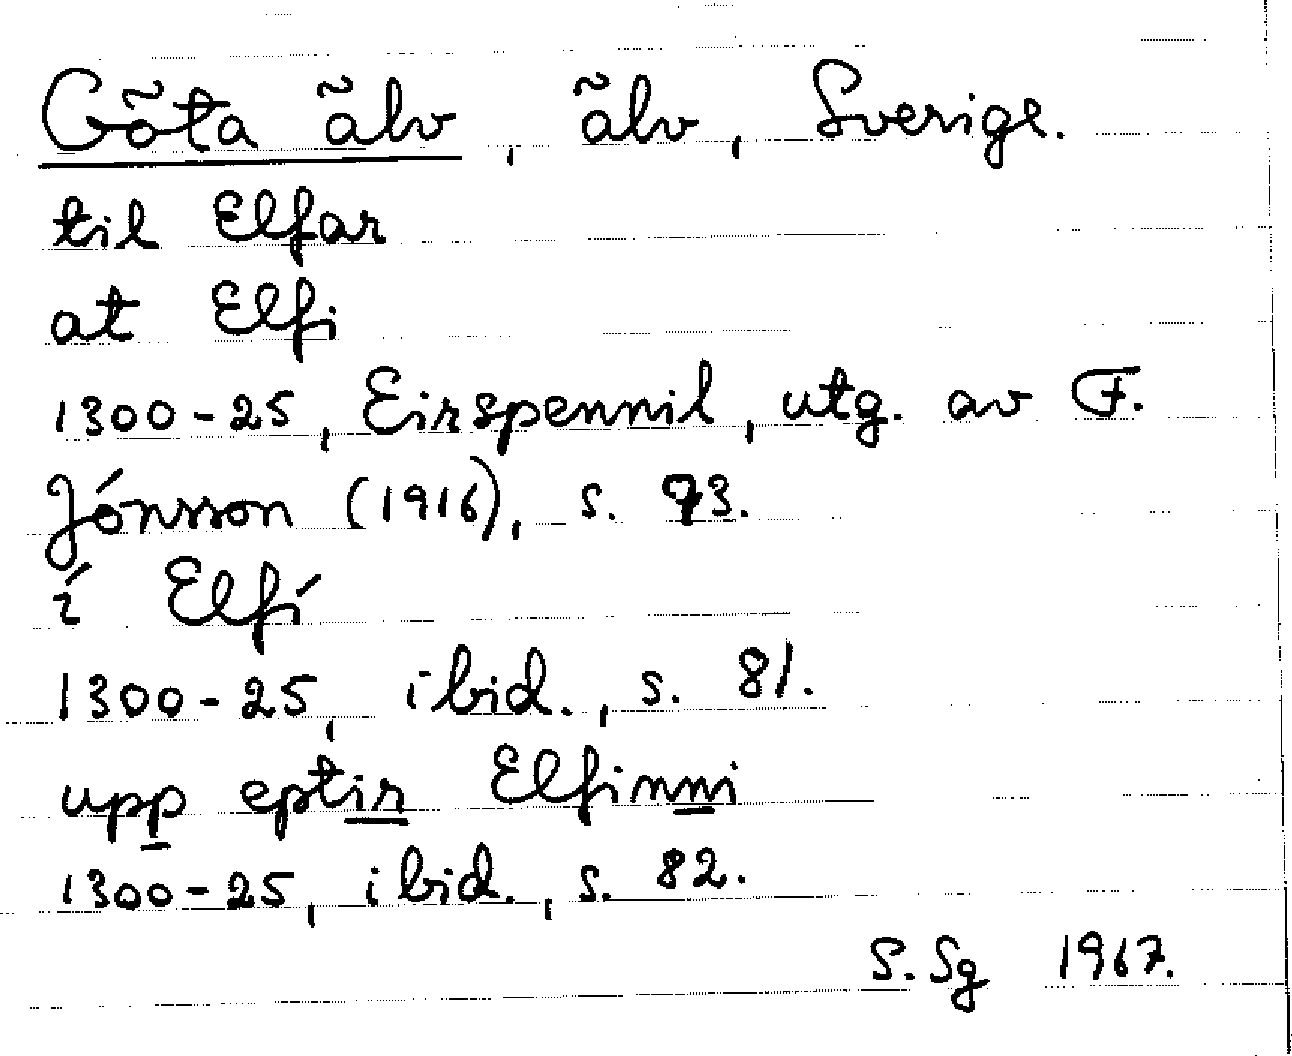 Göta älv, älv, Sverige.
til Elfar
at Elfi
1300-25, Eirspennil, utg. av F.
Jónsson (1916), s. 73.
í Elfí
1300-25, ibid., s. 81.
upp eptir Elfinni
1300-25, ibid., s. 82.
S. Sg 1967.